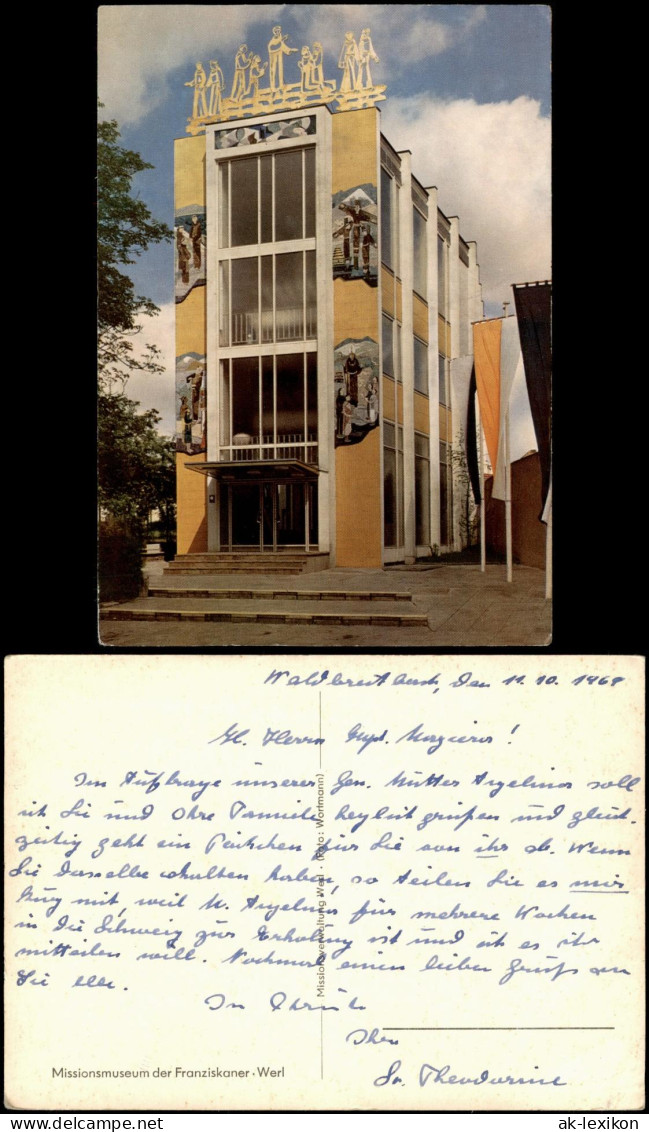 Waldbreitbach, den 11. 10. 1968
H. Herrn
Im Auftrage unserer Gen. Mutter Angelina soll
ich Sie und Ihre Familie herzlich grüßen und gleich-
zeitig geht ein Päckchen für Sie von ihr ab. Wenn
Sie dasselbe erhalten haben, so teilen Sie es mir
kurz mit, weil M. Angelina für mehrere Wochen
in die Schweiz zur Erholung ist und ich es ihr
mitteilen will. Nochmal einen lieben Gruß an
Sie alle.
In Christo
Ihre
Sr. Theodorine
Missionsverwaltung Werl · (Foto: Wortmann)
Missionsmuseum der Franziskaner · Werl
© www.ak-ansichtskarten.de
ak-lexikon